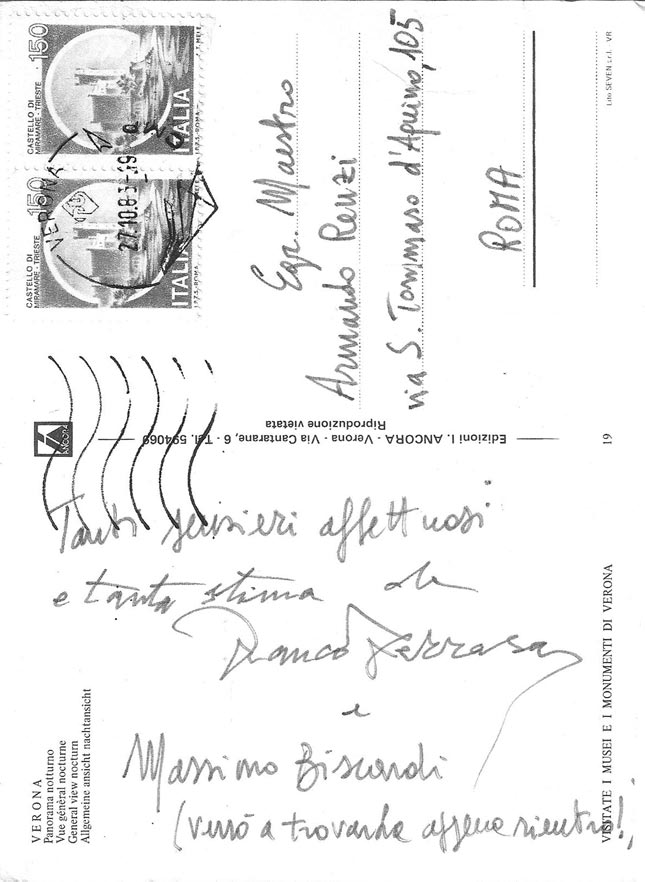 VERONA
Panorama notturno
Vue général nocturne
General view nocturn
Allgemeine ansicht nachtansicht
Tanti pensieri affettuosi
e tanta stima da
Franco
e
Massimo Biscardi
(verrò a trovarla appena rientro!)
VISITATE I MUSEI E I MONUMENTI DI VERONA
19
Edizioni I. ANCORA - Verona - Via Cantarane, 6 - Tel. 594069
Riproduzione vietata
ANCORA
CASTELLO DI
MIRAMARE - TRIESTE
150
ITALIA
CASTELLO DI
MIRAMARE - TRIESTE
150
ITALIA
VERONA
27.10.83-19
Egr. Maestro
Armando Renzi
via S. Tommaso d'Aquino, 105
ROMA
Lito SEVEN s.r.l. VR